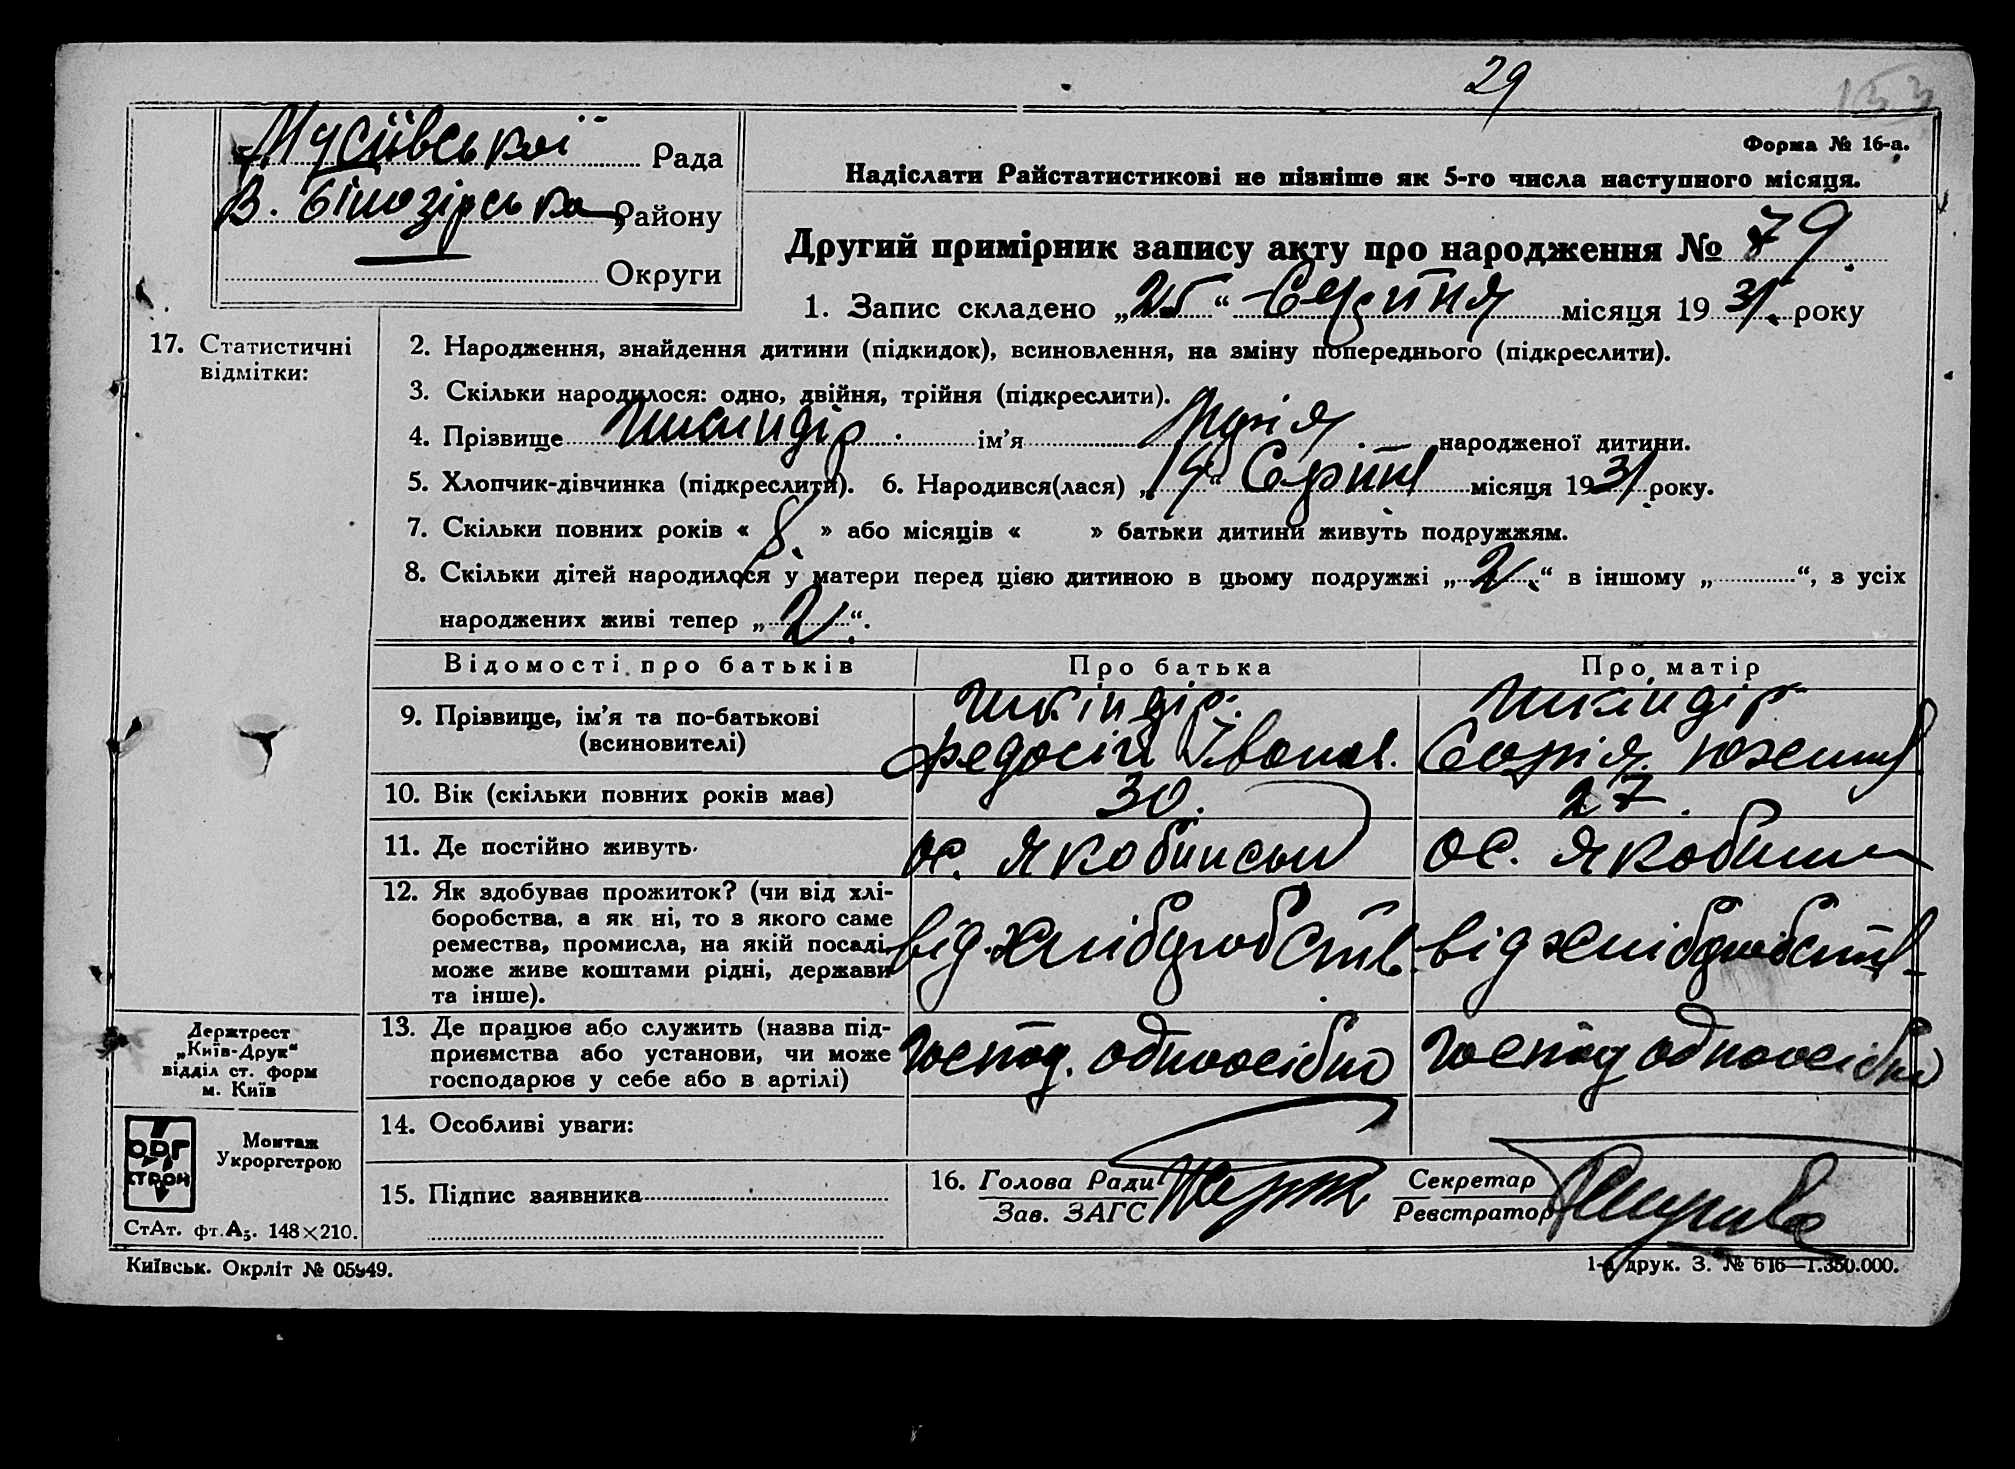 29
153
Мусіївської Рада
В. Білозірська Району
Округи
Форма № 16-а.
Надіслати Райстатистикові не пізніше як 5-го числа наступного місяця.
Другий примірник запису акту про народження № 79
1. Запис складено „25“ Серпня місяця 1931 року
17. Статистичні
відмітки:
2. Народження, знайдення дитини (підкидок), всиновлення, на зміну попереднього (підкреслити).
3. Скільки народилося: одно, двійня, трійня (підкреслити).
4. Прізвище ім’я народженої дитини.
5. Хлопчик-дівчинка (підкреслити). 6. Народився(лася) „19“ Серпня місяця 1931 року.
7. Скільки повних років « 8. » або місяців « » батьки дитини живуть подружжям.
8. Скільки дітей народилося у матери перед цією дитиною в цьому подружжі „2.“ в іншому „ “, з усіх
народжених живі тепер „2“.
Відомості про батьків
Про батька
Про матір
9. Прізвище, ім’я та по-батькові
(всиновителі)
Шкіндір
Федосій Іванов.
Шкіндір
Софія
10. Вік (скільки повних років має)
30.
27.
11. Де постійно живуть
ос. Якобинськ
ос. Якобинськ
12. Як здобуває прожиток? (чи від хлі-
боробства, а як ні, то з якого саме
ремества, промисла, на якій посаді,
може живе коштами рідні, держави
та інше).
від хліборобств.
від хліборобств
13. Де працює або служить (назва під-
приємства або установи, чи може
господарює у себе або в артілі)
господ. одноосібно
господ одноосібно
14. Особливі уваги:
15. Підпис заявника
16. Голова Ради
Зав. ЗАГС
Секретар
Реєстратор
Держтрест
„Київ-Друк“
відділ ст. форм
м. Київ
ОРГ
СТРОЙ
Монтаж
Укроргстрою
СтАт. фт. А₅. 148×210.
Київськ. Окрліт № 05949.
1-а друк. З. № 616—1.350.000.